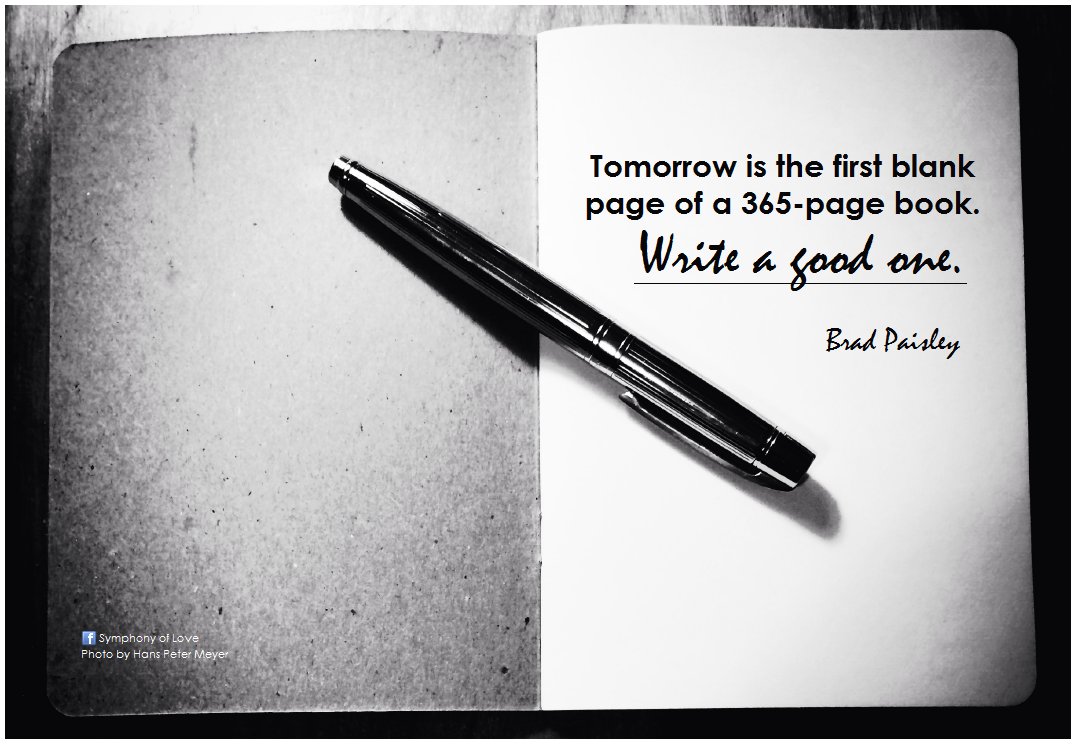 Tomorrow is the first blank
page of a 365-page book.
Write a good one.
Brad Paisley
f Symphony of Love
Photo by Hans Peter Meyer